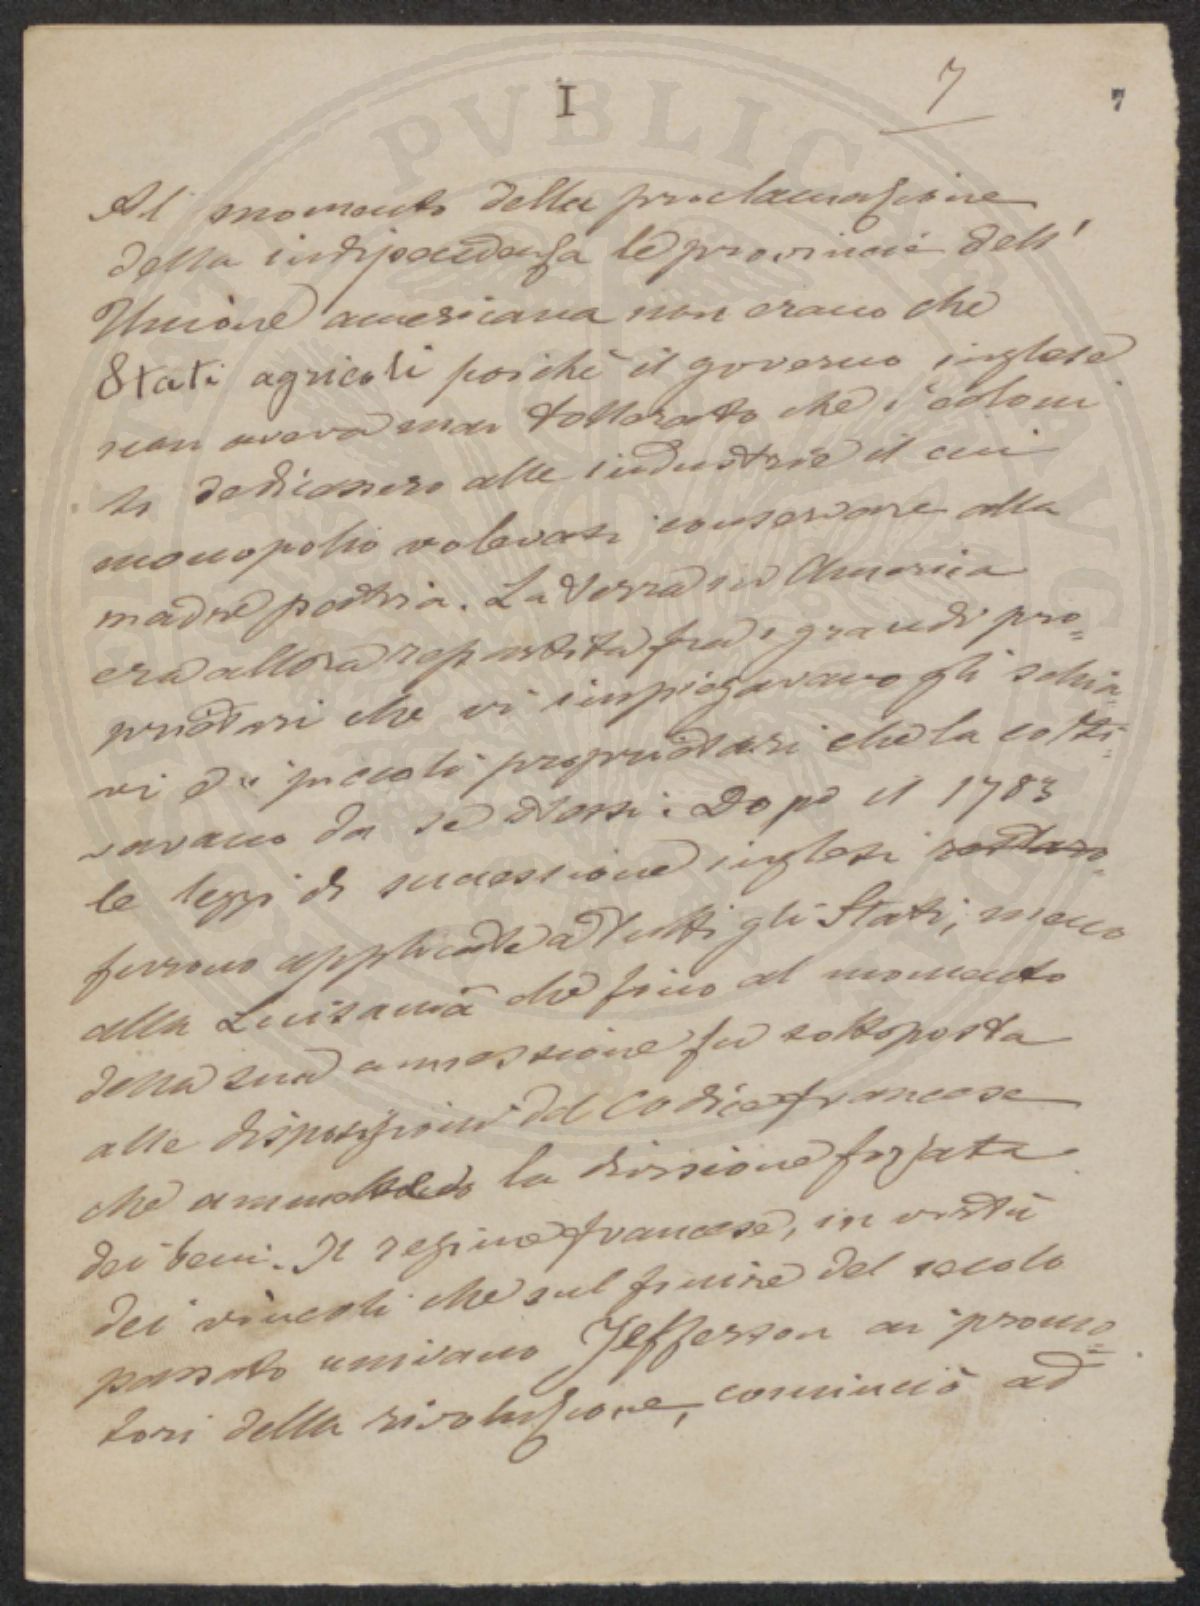 I
7
7
Al momento della proclamazione
della indipendenza le provincie dell'
Unione americana non erano che
Stati agricoli poichè il governo inglese
non aveva mai tollerato che i coloni
si dedicassero alle industrie il cui
monopolio volevasi conservare alla
madre patria. La terra in America
era allora repartita fra i grandi pro=
prietari che vi impiegavano gli schia=
vi e i piccoli proprietari che la colti=
vavano da sè stessi. Dopo il 1783
le leggi di successione inglesi restaro=
furrono applicate a tutti gli Stati, meno
alla Luisiana che fino al momento
della sua annessione fu sottoposta
alle disposizioni del Codice francese
che ammettendo la divisione forzata
dei beni. Il regime francese, in virtù
dei vincoli che sul finire del secolo
passato univano Jefferson ai promo=
tori della rivoluzione, cominciò ad